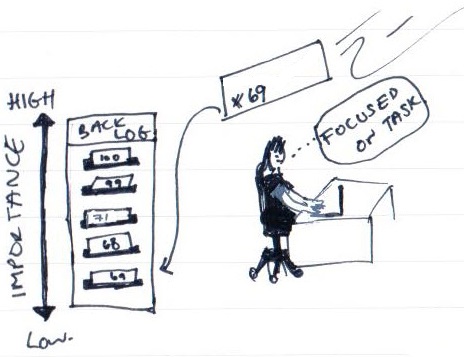 HIGH
IMPORTANCE
Low.
BACK
LOG
100
99
71
68
69
*69
FOCUSED
ON TASK